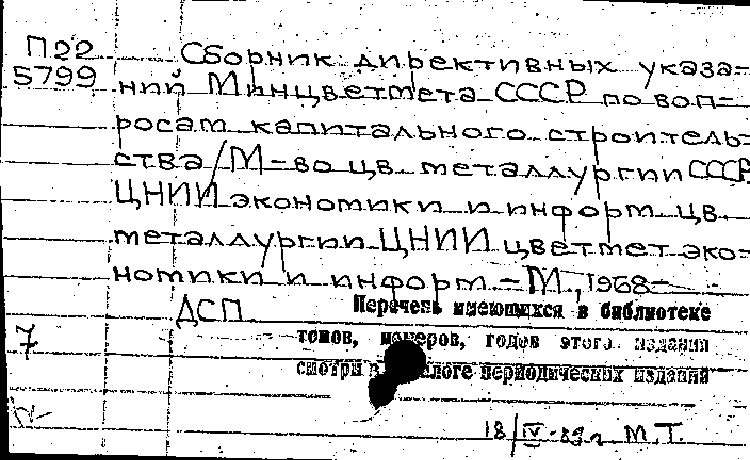 П22
5799
Сборник директивных указа-
ний Минцветмета СССР по воп-
росам капитального строитель-
ства/М-во цв. металлургии СССР
ЦНИИ экономики и информ. цв.
металлургии ЦНИИ цветмет эко-
номики и информ. - М., 1968-
ДСП.
Перечень имеющихся в библиотеке
томов, номеров, годов этого издания
смотри в каталоге периодических изданий
7
18/IV-89г М.Т.